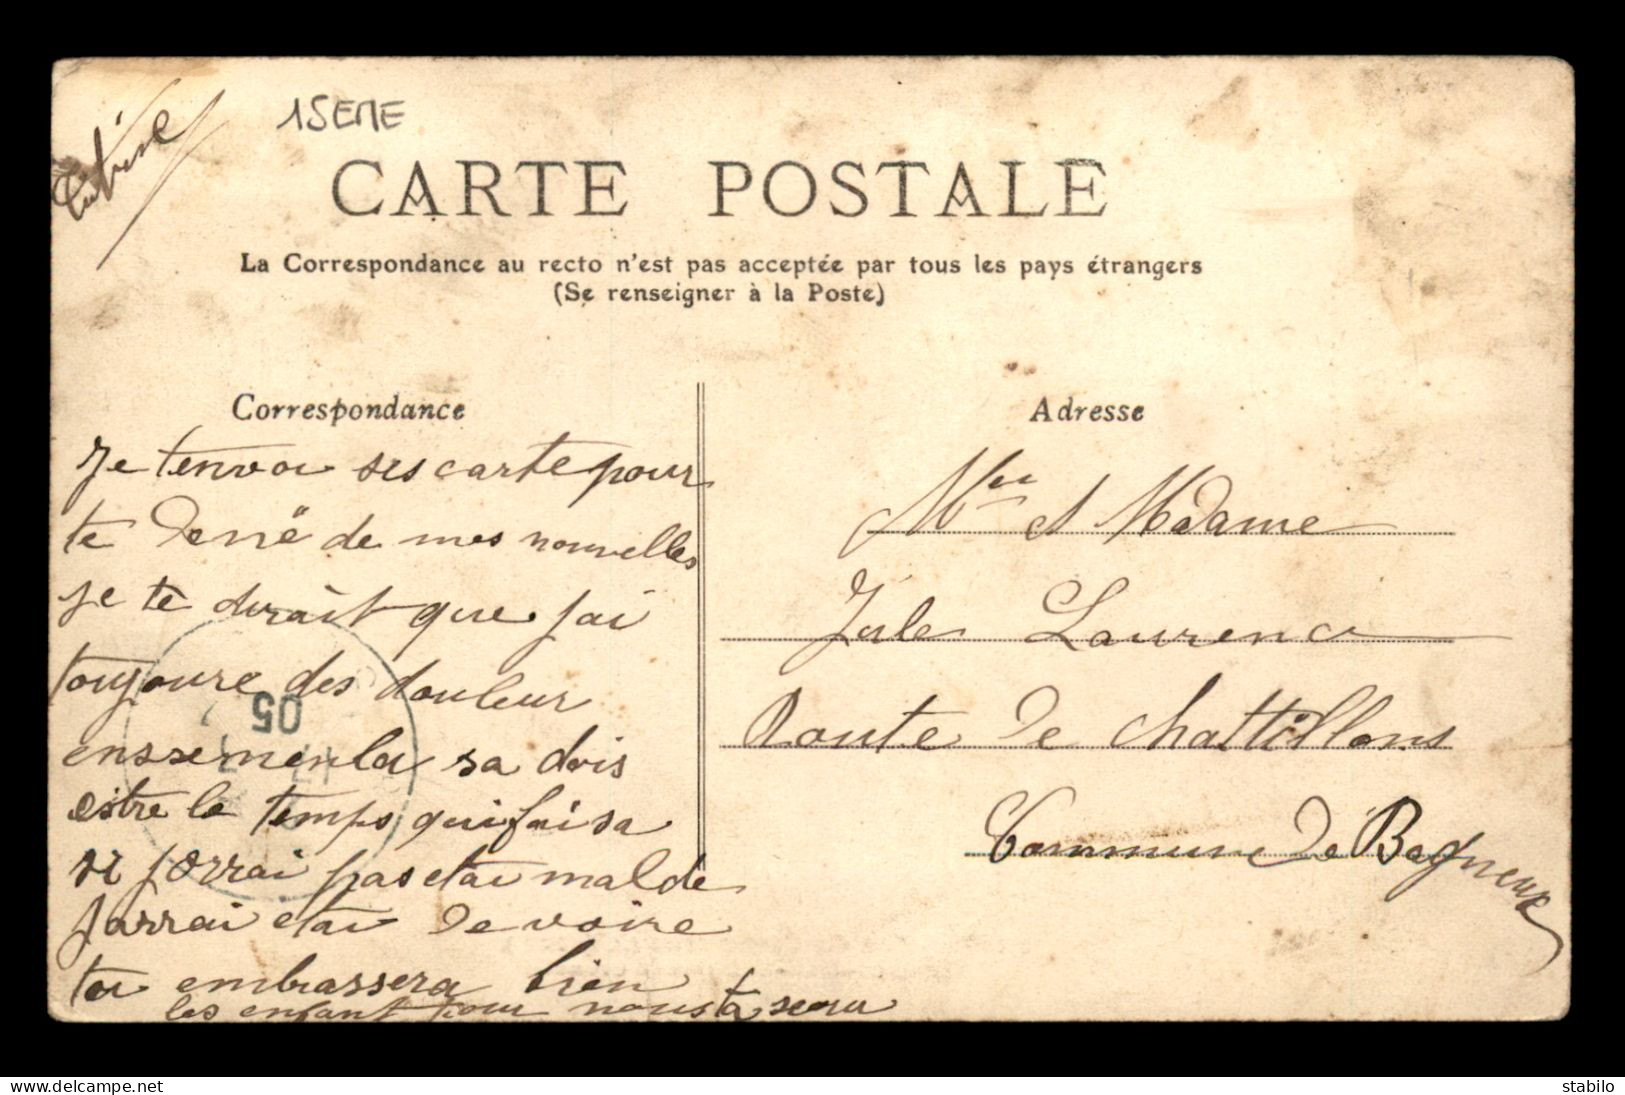 15EME
CARTE POSTALE
La Correspondance au recto n'est pas acceptée par tous les pays étrangers
(Se renseigner à la Poste)
Correspondance
Je tenvoi ses carte pour
te dene de mes nouvelles
je te dirait que jai
toujoure des douleur
enssemenla sa dois
estre le temps qui fai sa
si jorrai pas etai malde
jarrai etai de voire
tu embrassera bien
les enfant pour nous ta seur
05
Adresse
Mr et Madame
Jules Laurenci
Route de Chattillons
Commune de Bagneux
stabilo